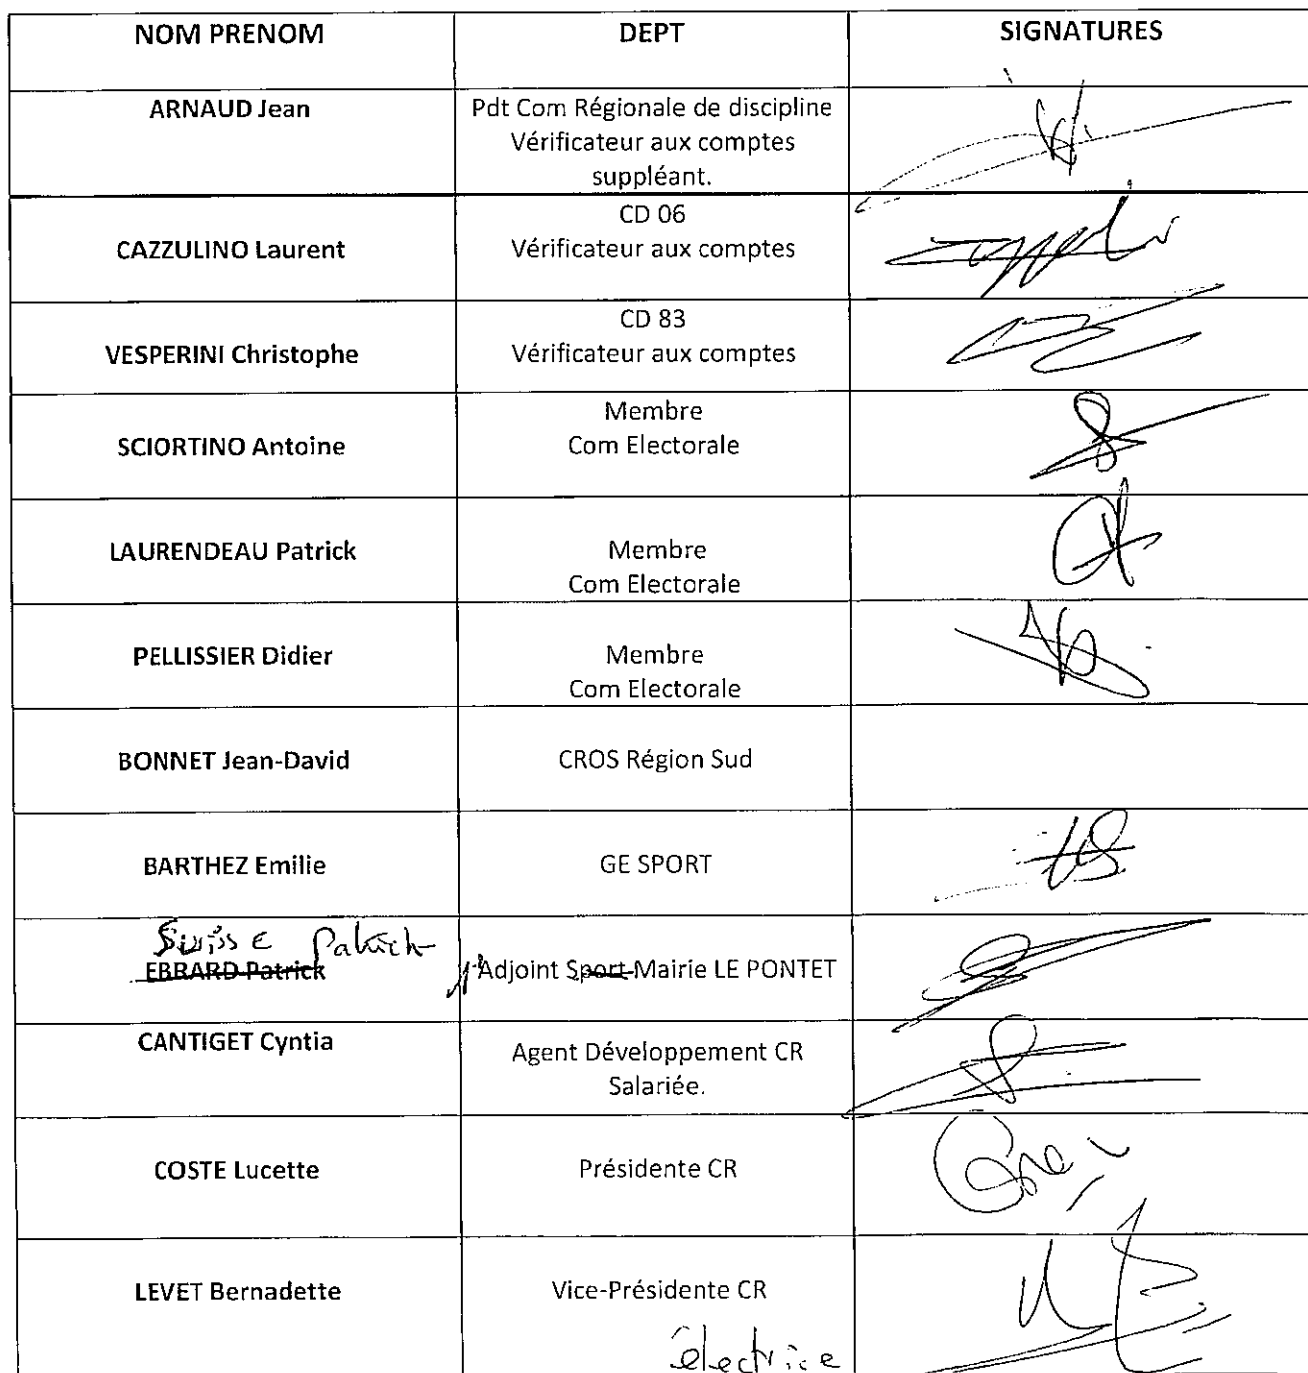 NOM PRENOM DEPT SIGNATURES
ARNAUD Jean Pdt Com Régionale de discipline
Vérificateur aux comptes
suppléant.
CD 06
CAZZULINO Laurent Vérificateur aux comptes
CD 83
VESPERINI Christophe Vérificateur aux comptes
Membre
SCIORTINO Antoine Com Electorale
LAURENDEAU Patrick Membre
Com Electorale
PELLISSIER Didier Membre
Com Electorale
BONNET Jean-David CROS Région Sud
BARTHEZ Emilie GE SPORT
Suisse Patrick
EBRARD Patrick Adjoint Sport Mairie LE PONTET
CANTIGET Cyntia Agent Développement CR
Salariée.
COSTE Lucette Présidente CR
LEVET Bernadette Vice-Présidente CR
électrice